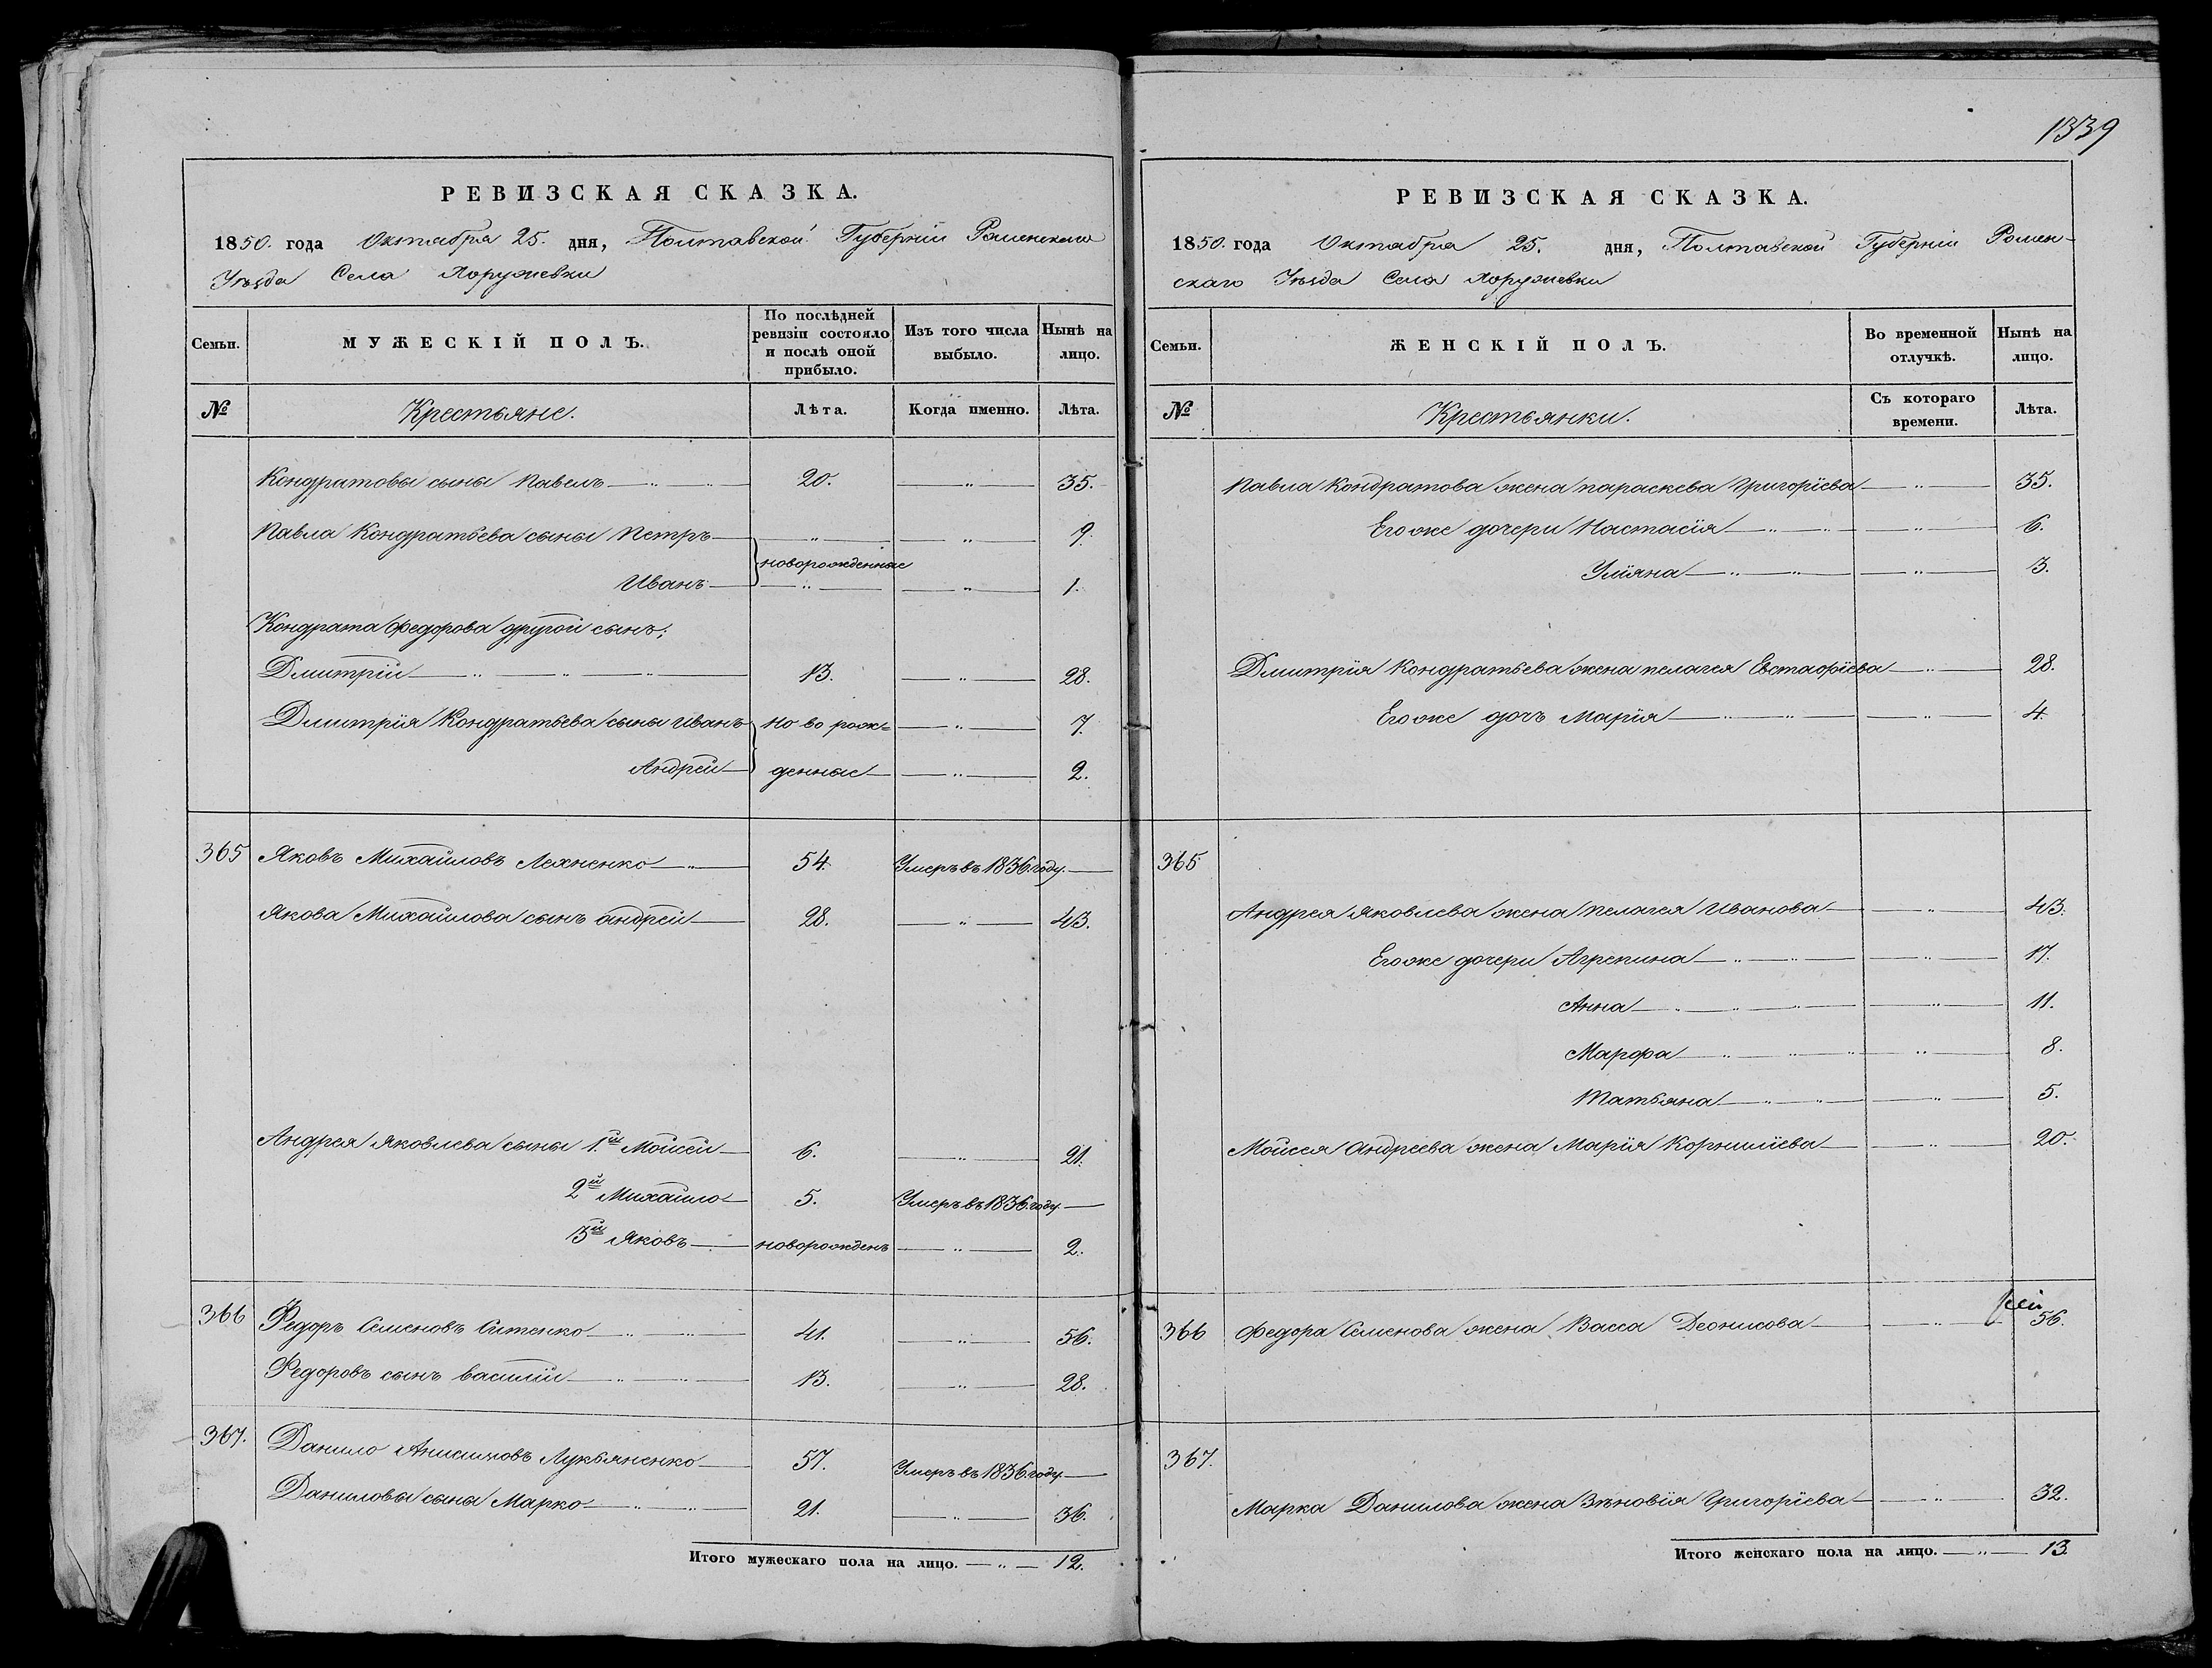 1339
РЕВИЗСКАЯ СКАЗКА.
1850. года Октября 25. дня, Полтавской Губерніи Роменскаго
Уѣзда Села Хоружевки
Семьи. МУЖЕСКІЙ ПОЛЪ. По послѣдней ревизіи состояло и послѣ оной прибыло. Изъ того числа выбыло. Нынѣ на лицо.
№ Крестьяне. Лѣта. Когда именно. Лѣта.
Кондратовы сыны Павелъ — „ — 20. — „ — 35.
Павла Кондратьева сыны Петръ — „ — — „ — 9.
новорожденные
Иванъ — „ — — „ — 1.
Кондрата Федорова другой сынъ;
Дмитрій — „ — „ — „ — 13. — „ — 28.
Дмитрія Кондратьева сыны Иванъ но во рож= — „ — 7.
Андрей — денные — — „ — 2.
365 Яковъ Михайловъ Лехненко — „ — 54. Умеръ въ 1836. году. —
Якова Михайлова сынъ андрей — 28. — „ — 43.
Андрея Яковлева сыны 1.й Мойсей — 6. — „ — 21.
2й Михайло — 5. Умеръ въ 1836. году. —
3й Яковъ — новорожденъ — „ — 2.
366 Федоръ Семеновъ Ситенко — „ — „ — 41. — „ — 56.
Федоровъ сынъ василій — „ — „ — 13. — „ — 28.
367. Данило Анисимовъ Лукьяненко — 57. Умеръ въ 1836. году. —
Даниловы сыны Марко — „ — „ — 21. — „ — 36.
Итого мужескаго пола на лицо. — „ — 12.
РЕВИЗСКАЯ СКАЗКА.
1850. года Октября 25. дня, Полтавской Губерніи Ромен-
скаго Уѣзда Села Хоружевки
Семьи. ЖЕНСКІЙ ПОЛЪ. Во временной отлучкѣ. Нынѣ на лицо.
№ Крестьянки. Съ котораго времени. Лѣта.
Павла Кондратова жена параскева Григоріева — „ — 35.
Егоже дочери Настасія — „ — „ — „ — 6.
Уліяна — „ — „ — „ — 3.
Дмитрія Кондратьева жена пелагея Евстафіева — „ — 28.
Егоже дочь Марія — „ — „ — „ — 4.
365
Андрея Яковлева жена пелагея Иванова — „ — 43.
Егоже дочери Агрепина — „ — „ — „ — 17.
Анна — „ — „ — „ — „ — 11.
Марфа — „ — „ — „ — 8.
Татьяна — „ — „ — „ — 5.
Мойсея Андреева жена Марія Корниліева — „ — 20.
366 Федора Семенова жена Васса Деонисова — „ — 56.
367.
Марка Данилова жена Зѣновія Григоріева — „ — 32.
Итого женскаго пола на лицо. — „ — 13.